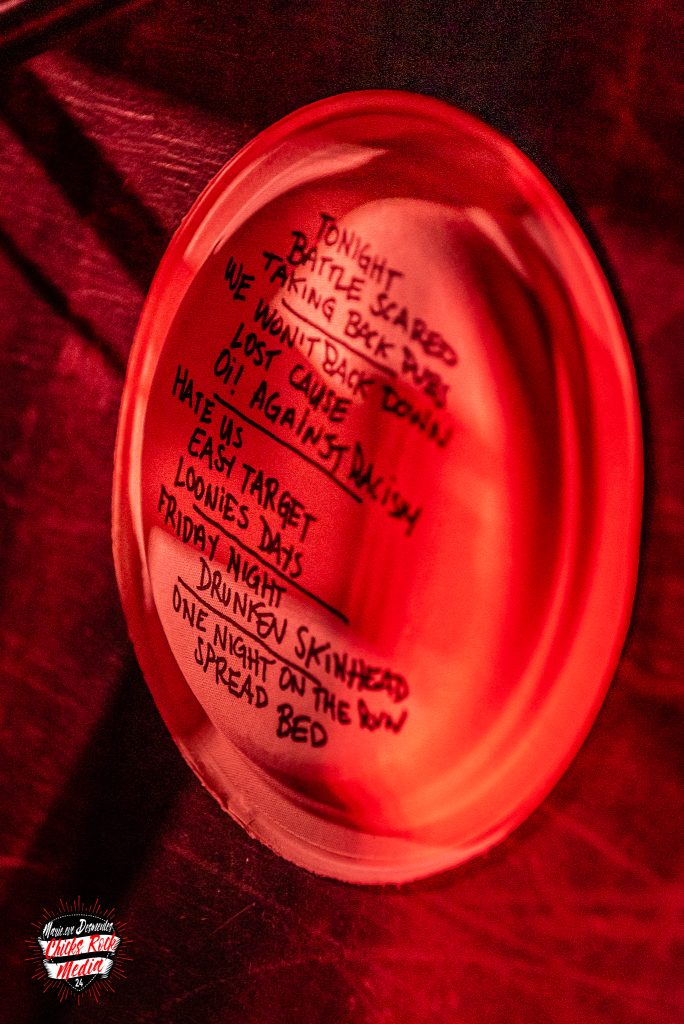 TONIGHT
BATTLE SCARED
TAKING BACK DUBS
WE WON'T BACK DOWN
LOST CAUSE
Oi! AGAINST RACISM
HATE US
EASY TARGET
LOONIES DAYS
FRIDAY NIGHT
DRUNKEN SKINHEAD
ONE NIGHT ON THE
SPREAD BED
Marie-eve Desmeules
Chicks Rock
Media
24